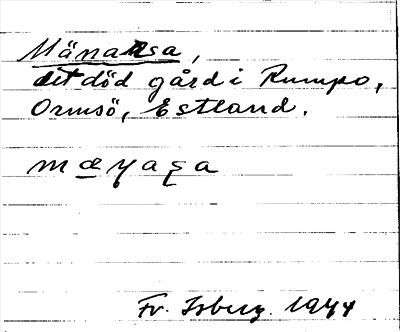 Mänarsa,
död gård i Rumpo,
Ormsö, Estland.
mæɳaʂa
Fr. Isberg. 1944